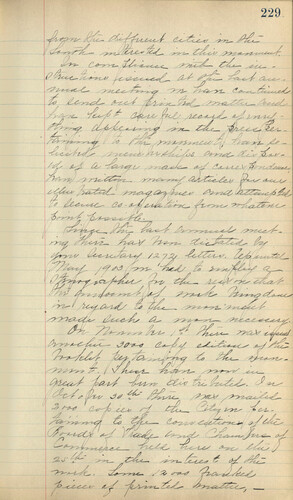 229
from the different cities in the
South interested in this movement
In compliance with the in-
structions issued at the last an-
nual meeting we have continued
to send out printed matter and
have kept careful record of every-
thing appearing in the press per-
taining to the movement, have so-
licited memberships and disposed
of a large mass of correspondence
have written many articles for our
illustrated magazines and attempted
to secure cooperation from whatever
source possible.
Since the last annual meet-
ing there has been dictated by
your Secretary 1272 letters. Up until
May 1903 we had to employ a
stenographer for the reason that
the amount of work being done
in regard to the movement
made such a move necessary
On November 1st there was issued
another 3000 copy edition of the
booklet pertaining to the move-
ment. These have now in
great part been distributed. In
October 30th there was mailed
2000 copies of the per-
taining to the convention of the
Boards of Trade and Chambers of
Commerce held here on the
25th in the interest of the
work. Some 12000
pieces of printed matter